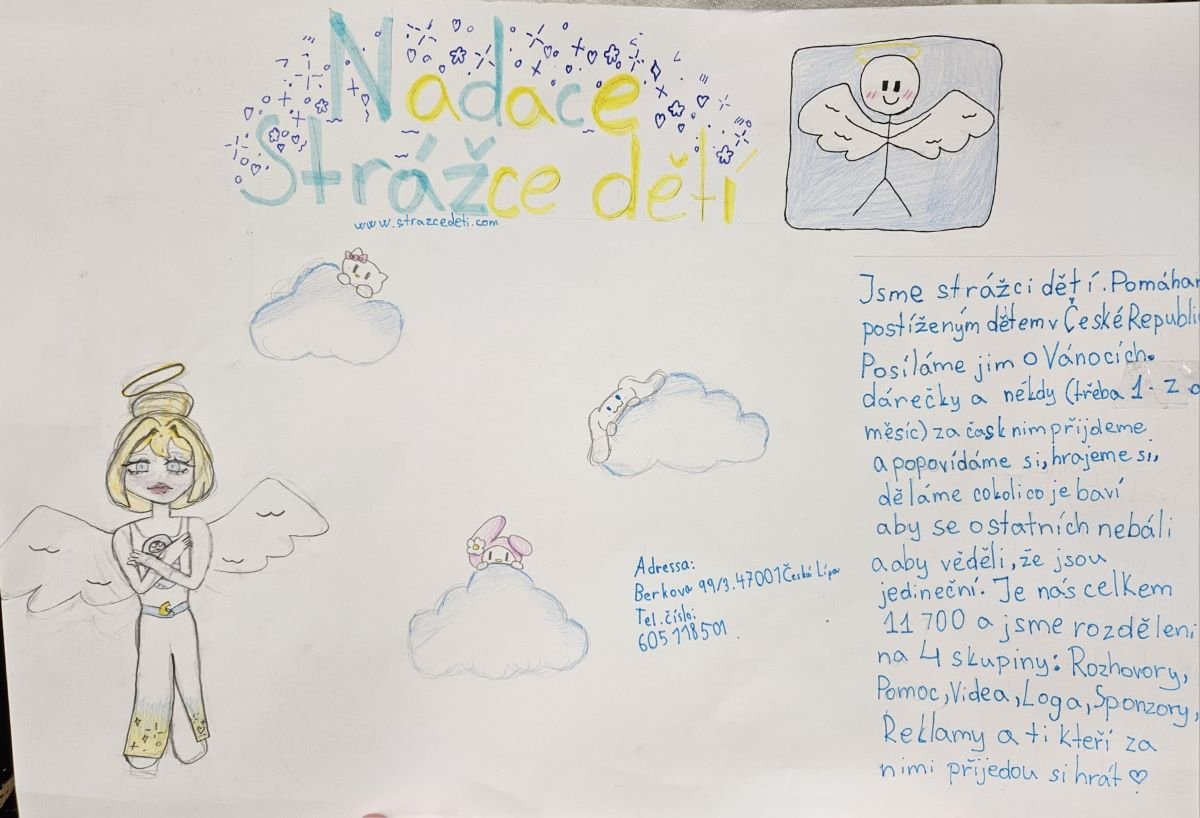 Nadace
Strážce dětí
www.strazcedeti.com
Jsme strážci dětí. Pomáhám
postíženým dětem v České Republi
Posíláme jim o Vánocích.
dárečky a někdy (třeba 1. z
měsíc) za čas k nim přijdeme
a popovídáme si, hrajeme si,
děláme cokoli co je baví
aby se ostatních nebáli
a aby věděli, že jsou
jedineční. Je nás celkem
11 700 a jsme rozděleni
na 4 skupiny: Rozhovory,
Pomoc, Videa, Loga, Sponzory,
Reklamy a ti kteří za
nimi přijedou si hrát ♡
Adressa:
Berkova 99/3. 47001 Česká Lípa
Tel. číslo:
605 118 501